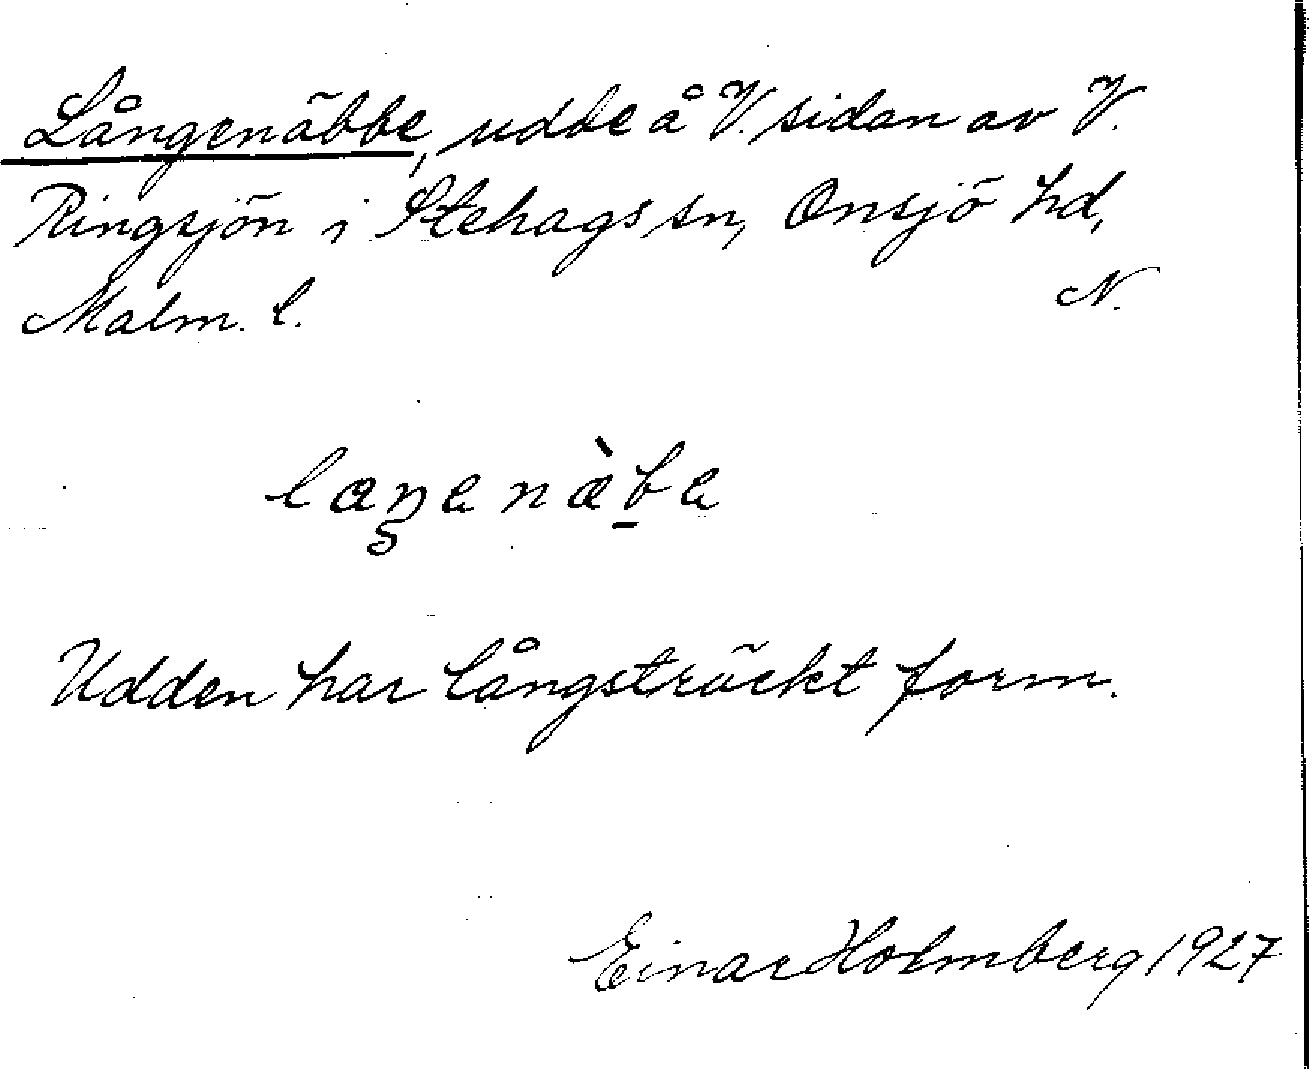 Långenäbbe, udde å V. sidan av V.
Ringsjön i Stehags sn, Onsjö hd,
Malm. l. N.
Udden har långsträckt form.
Einar Holmberg 1927